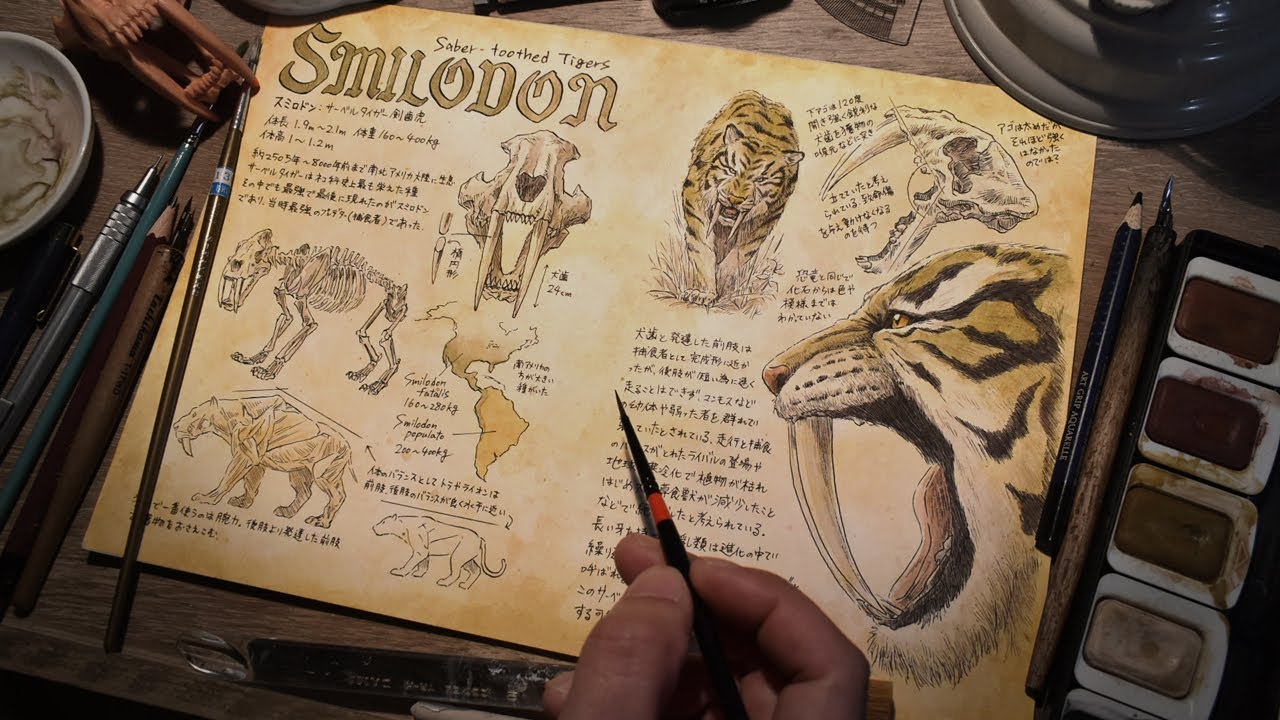 Saber-toothed Tigers
SMILODON
スミロドン:サーベルタイガー 剣歯虎
体長 1.9m〜2.1m 体重160〜400kg
体高 1〜1.2m
約250万年〜8000年前まで南北アメリカ大陸に生息
サーベルタイガーはネコ科史上最も栄えた種
その中でも最強で最後に現れたのがスミロドン
であり、当時最強のプレデター(捕食者)であった.
楕円形
犬歯
24cm
Smilodon
fatalis
160〜280kg
Smilodon
populato
200〜400kg
南アメリカの
方が大きい
種がいた
体のバランスとして トラやライオンは
前肢、後肢のバランスが良く水平に近い
で一番使うのは腕力。後肢より発達した前肢
物をおさえこむ.
下アゴは120度
開き強く鋭利な
犬歯を獲物の
喉元などに突き
立てていたと考え
られている.致命傷
を与え動けなくなる
のを待つ
アゴは太めだが
それほど強く
はなかった
のでは?
恐竜と同じで
化石からは色や
模様までは
わかっていない
犬歯と発達した前肢は
捕食者として完成形に近か
ったが、後肢が短い為に速く
走ることはできず.マンモスなど
の幼体や弱った者を群れで
ていたとされている.走行と捕食
のバ スがとれたライバルの登場や
地球 寒冷化で植物が枯れ
はじめ 草食獣が減少したこと
などで したと考えられている.
長い牙 類は進化の中で
繰り
呼ばれ
このサーベ
する
Tachikawa
ART GRIP AQUARELLE